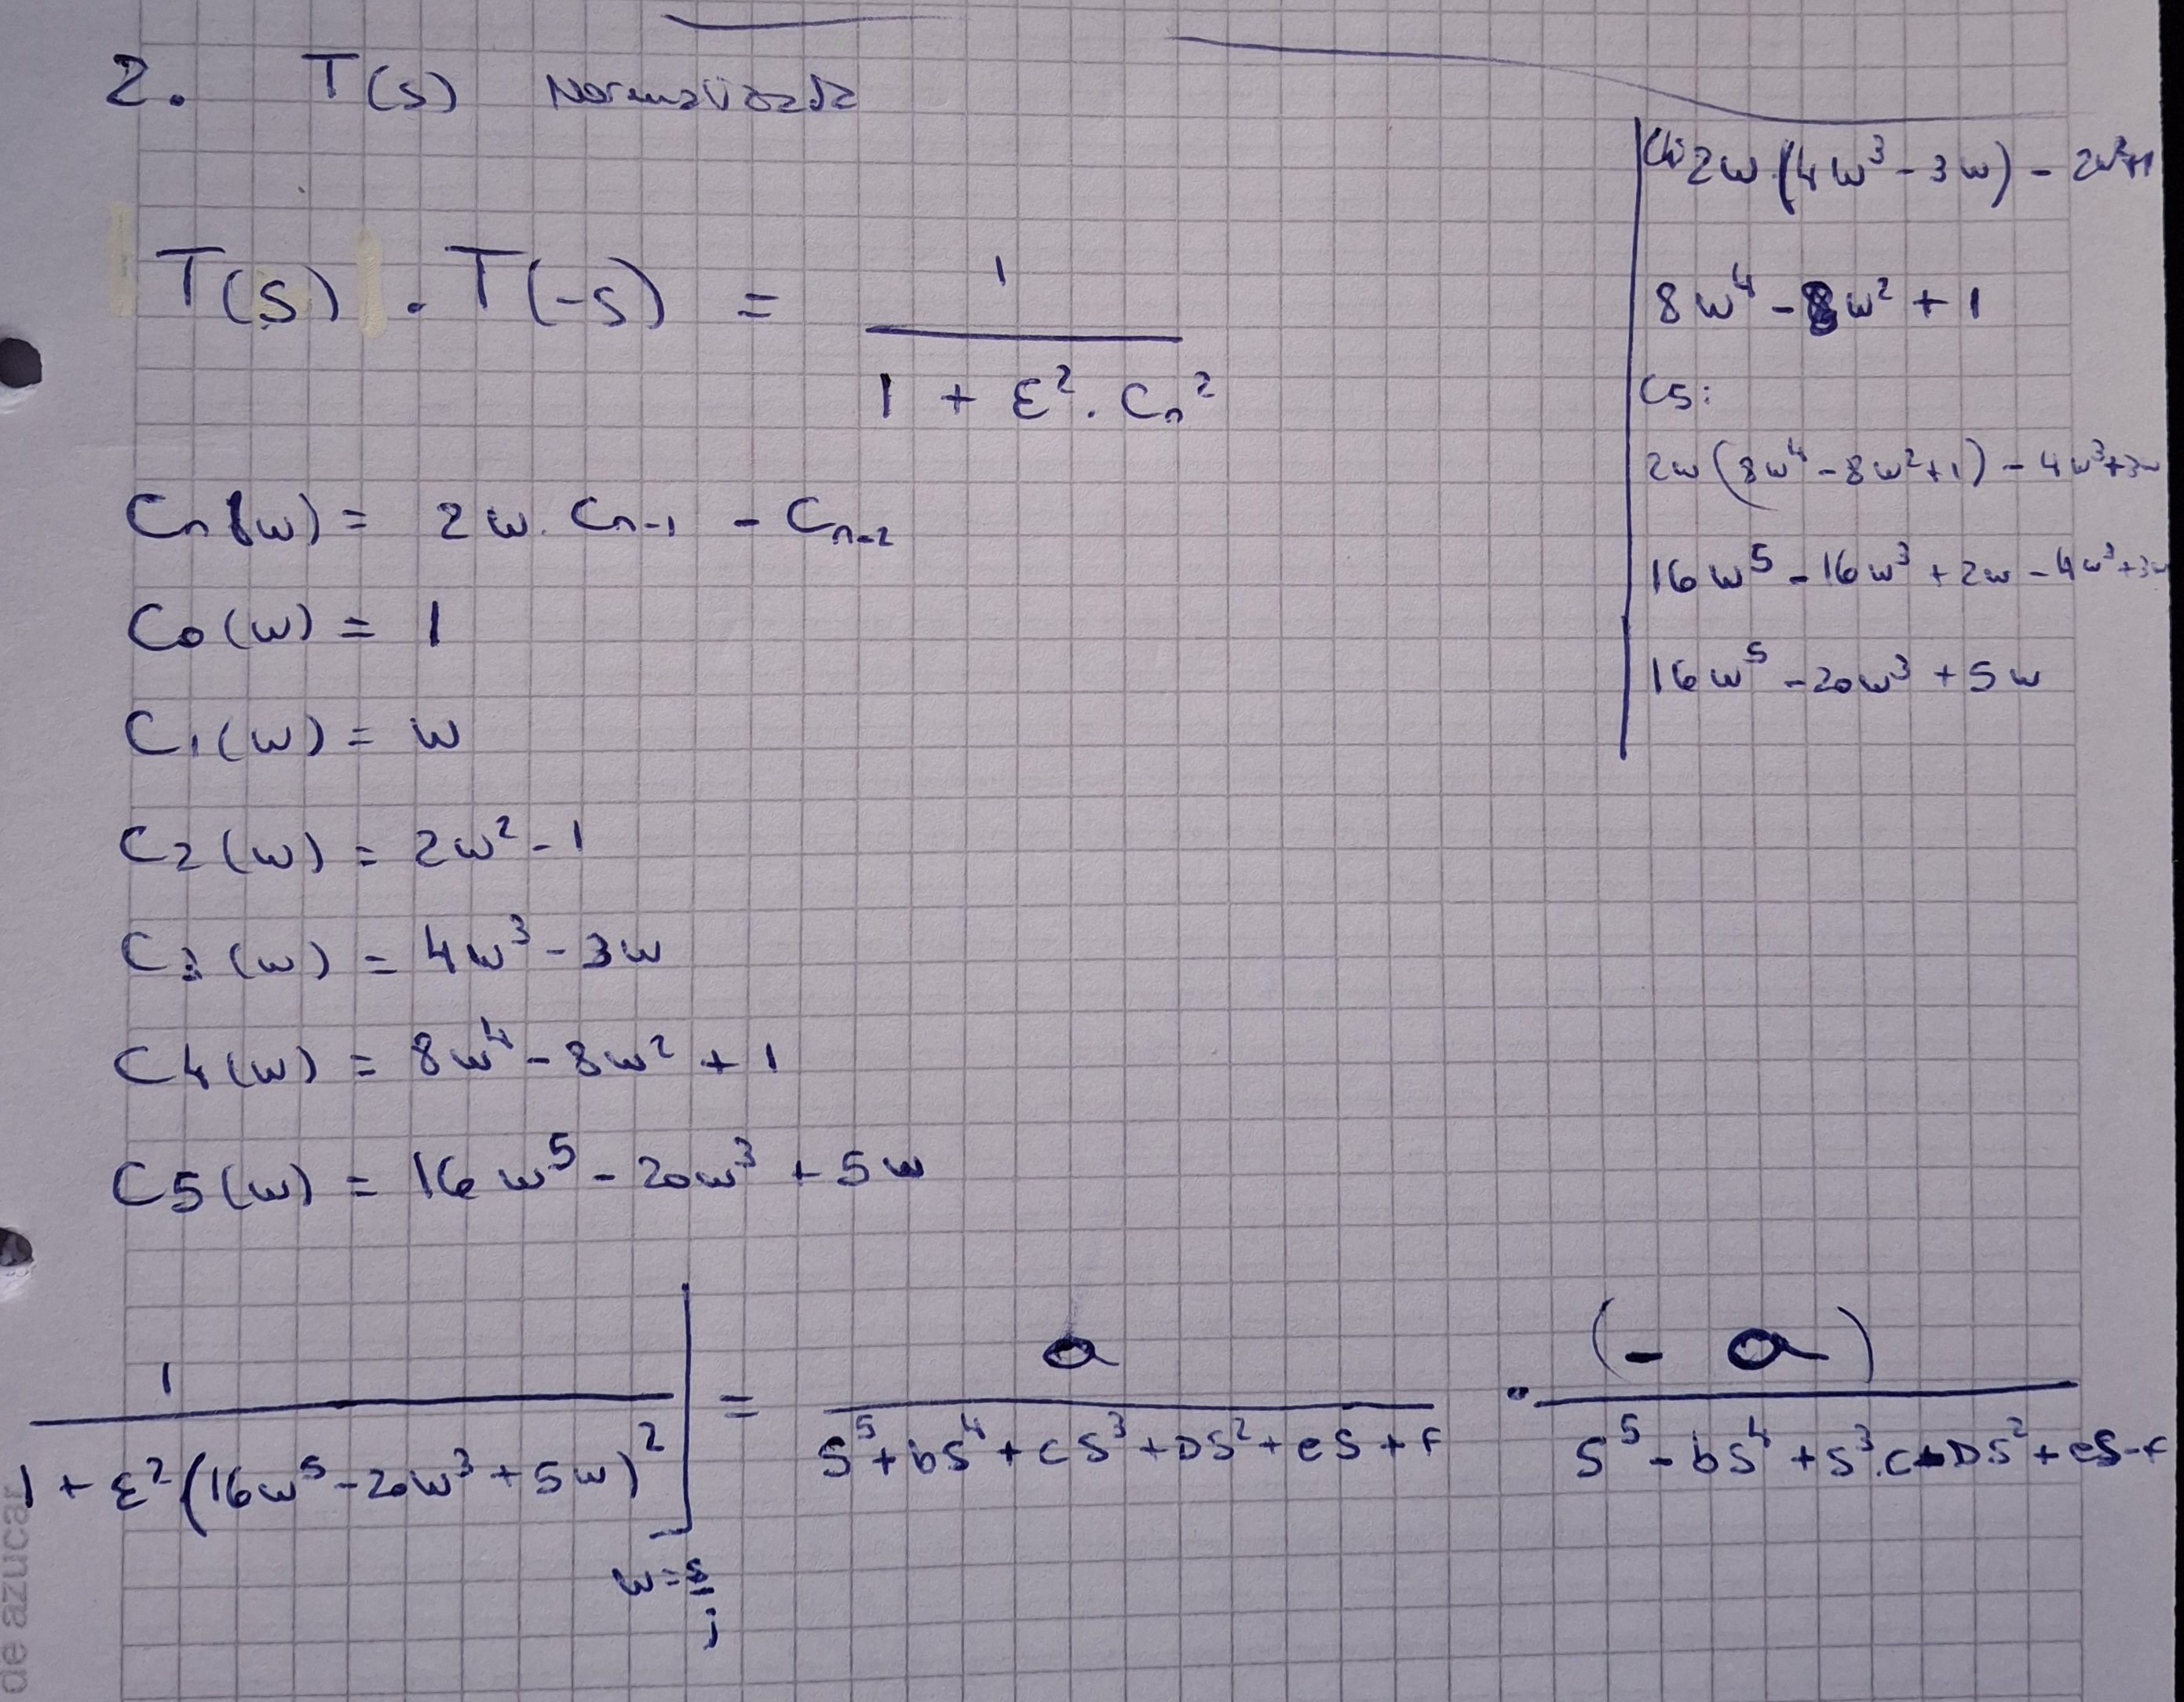 2. T(s) Normalizada
T(s) . T(-s) = 1 / (1 + ε². Cn²)
Cn(w) = 2w. Cn-1 - Cn-2
C0(w) = 1
C1(w) = w
C2(w) = 2w² - 1
C3(w) = 4w³ - 3w
C4(w) = 8w⁴ - 8w² + 1
C5(w) = 16w⁵ - 20w³ + 5w
C4: 2w.(4w³ - 3w) - 2w²+1
8w⁴ - 8w² + 1
C5:
2w(8w⁴ - 8w²+1) - 4w³+3w
16w⁵ - 16w³ + 2w - 4w³+3w
16w⁵ - 20w³ + 5w
1 / (1 + ε²(16w⁵ - 20w³ + 5w)²) ] w = s/j = a / (s⁵ + bs⁴ + cs³ + Ds² + es + f) . (- a) / (s⁵ - bs⁴ + s³.c - Ds² + es - f)
de azucar